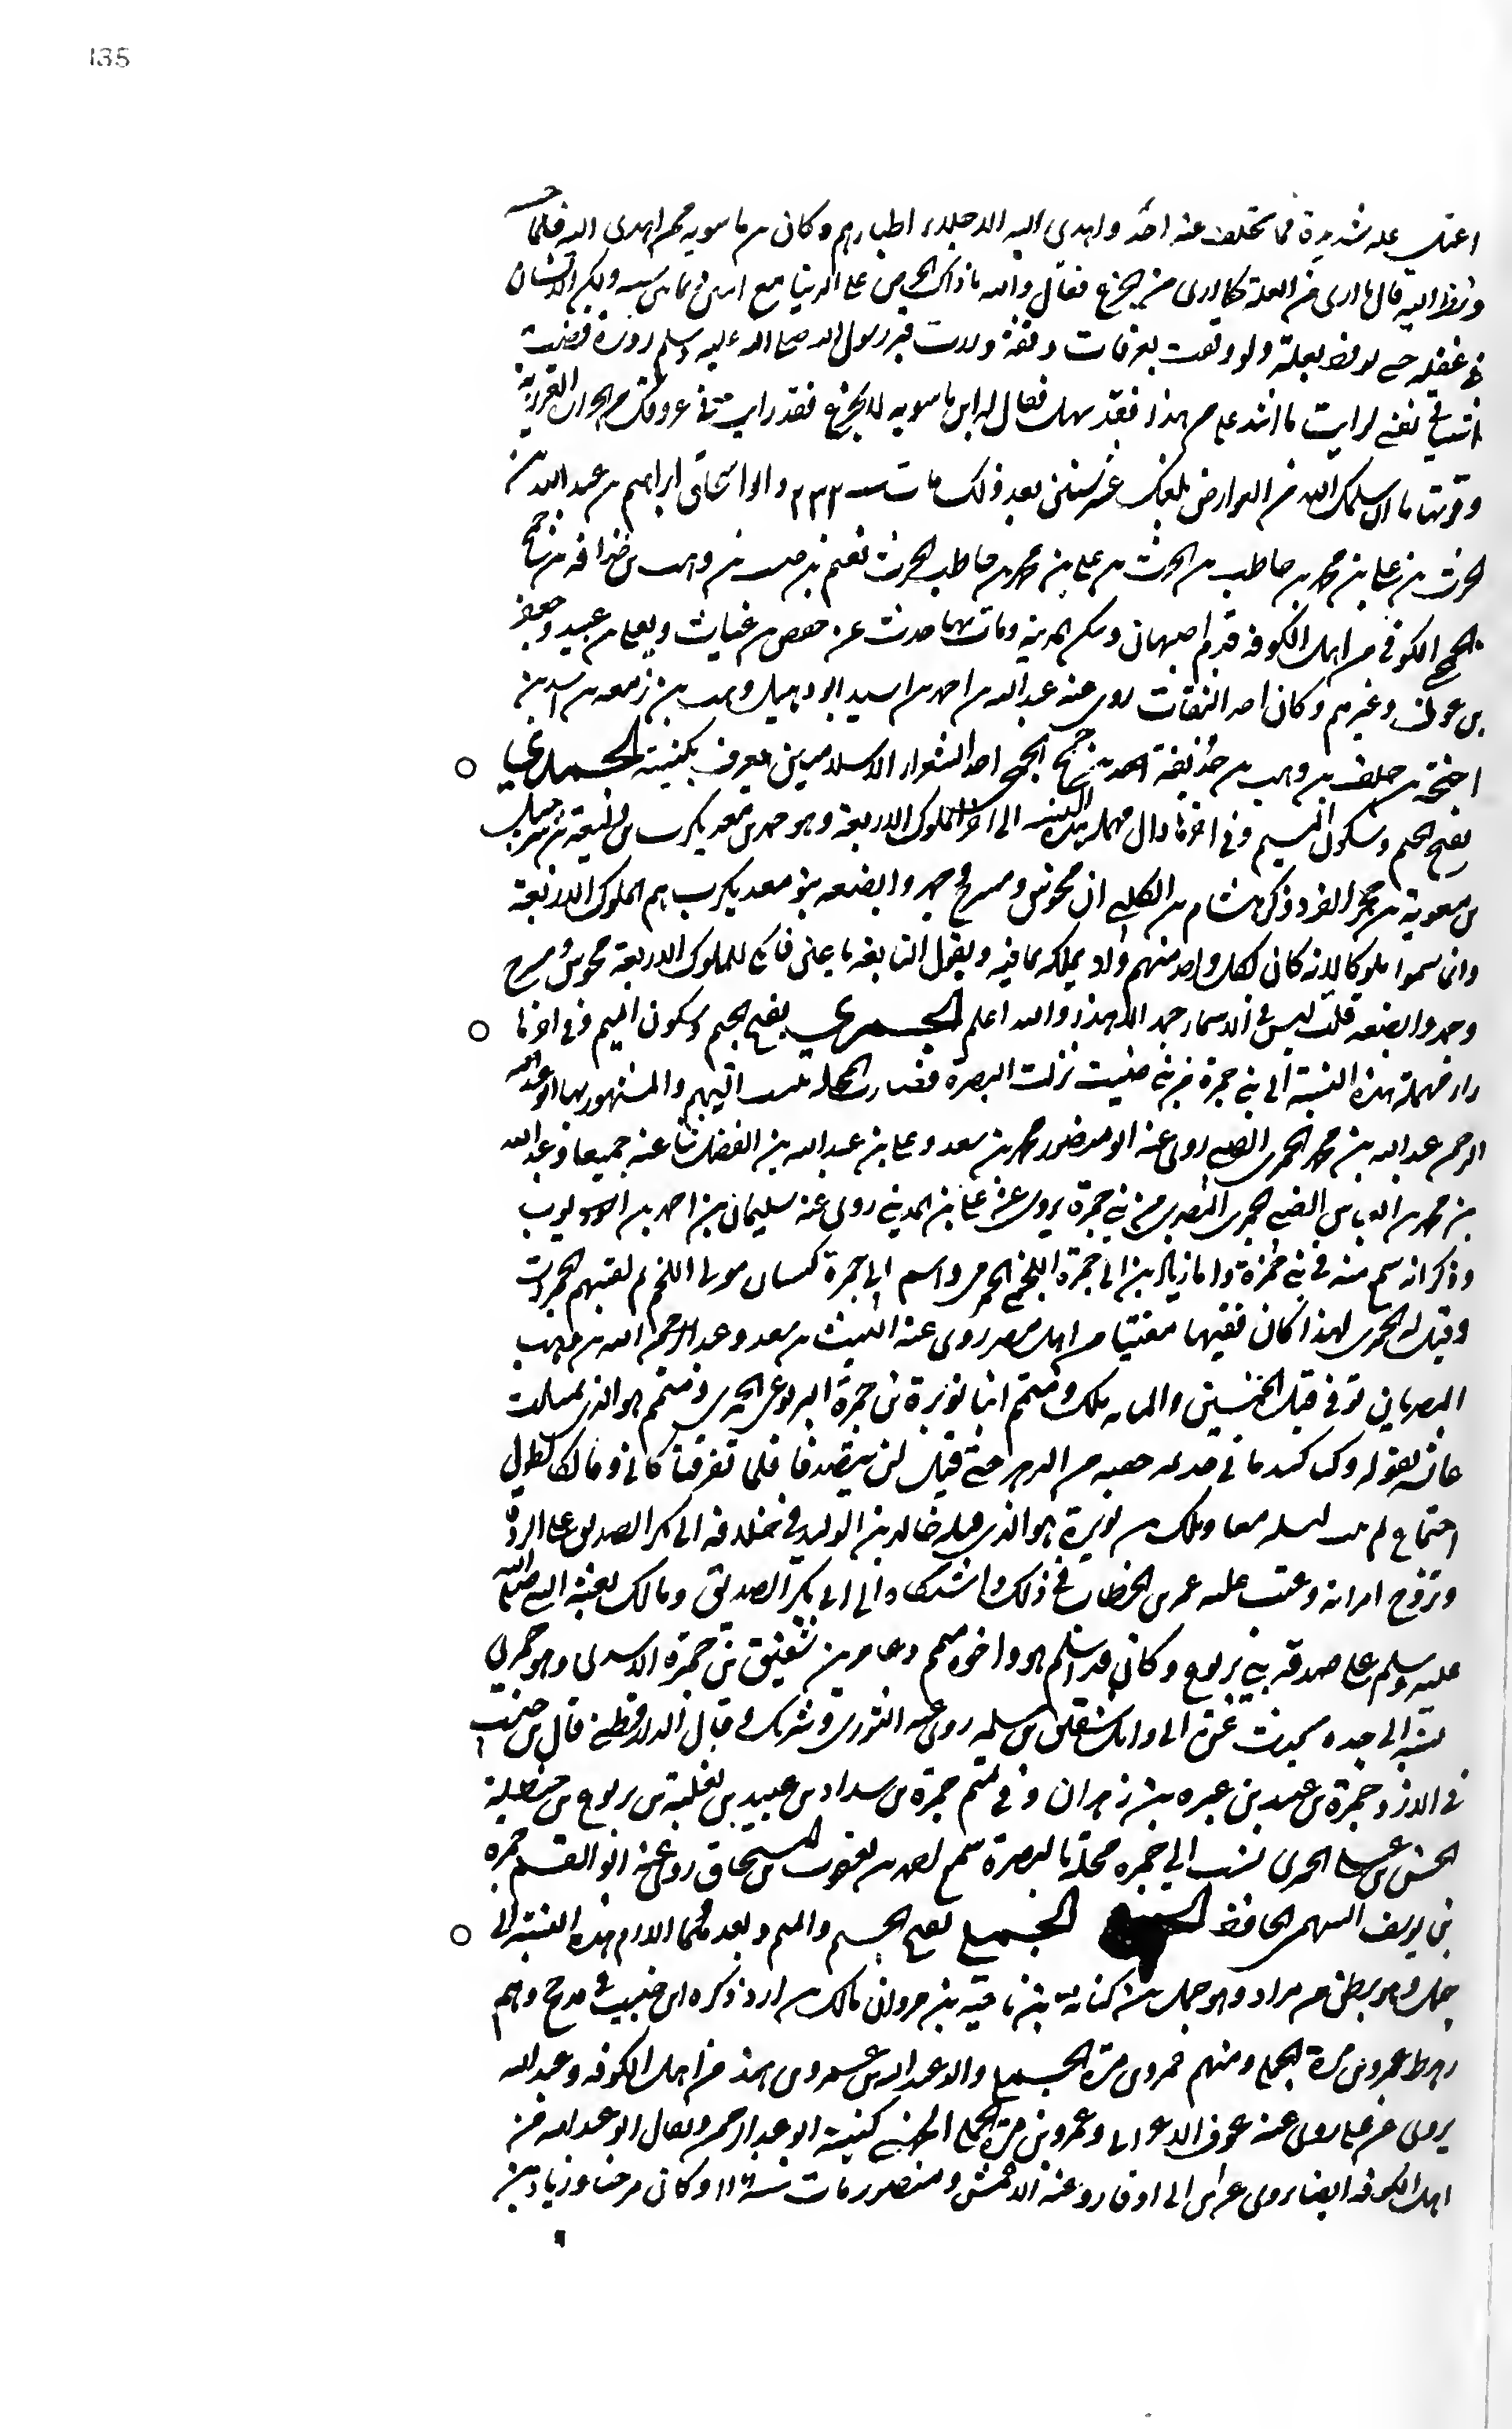 135
اعتل علة شديدة فما تخلف عنه احد واهدى اليه الاجلاء اطباءهم وكان بن ماسويه ممن اهدى اليه فلما جس
ونظر اليه قال ما ارى من العلة كما ارى من الجزع فقال والله ما ذاك لحرص على الدنيا مع ولكن الانسان
في غفلة حتى يوقظ بعلة ولو وقفت بعرفات وقفة وزرت قبر رسول الله صلى الله عليه وسلم زورة وقضيت
اشياء في نفسي لرايت ما اشتد علي من هذا فقد سهل فقال له ابن ماسويه لا تجزع فقد رايت في عروقك من الحرارة الغريزية
وقوتها ما ان سلمك الله من العوارض بلغك عشر سنين بعد ذلك مات سنة ٢٣٣ وابو اسحاق ابراهيم بن عبد الله بن
الحرث بن علي بن محمد بن حاطب بن الحرث بن معمر بن حبيب بن وهب بن حذافة بن جمح
الجمحي الكوفي من اهل الكوفة قدم اصبهان وسكن المدينة ومات بها حدث عن حفص بن غياث ويعلى بن عبيد وجعفر
بن عون وغيرهم وكان احد الثقات روى عنه عبد الله بن احمد بن اسيد ابو دهبل وهب بن زمعة بن اسيد بن
احيحة بن خلف بن وهب بن حذافة بن جمح الجمحي احد الشعراء الاسلاميين معروف بكنيته الجمدي
بفتح الجيم وسكون الميم وفي اخرها دال مهملة هذه النسبة الى احد الملوك الاربعة وهو جمد بن معديكرب بن وليعة بن شرحبيل
بن معوية بن حجر الفرد ذكر هشام بن الكلبي ان مخوس ومسرح وجمد وابضعه بنو معديكرب هم الملوك الاربعة
وانما سموا ملوكا لانه كان لكل واحد منهم واد يملكه بما فيه ويقول النابغة يا عين فابكي للملوك الاربعة مخوس ومسرح
وجمد وابضعه قلت ليس في الاسماء جمد الا هذا والله اعلم الجمري بفتح الجيم وسكون الميم وفي اخرها
راء مهملة هذه النسبة الى بني جمرة من بني ضبيعة نزلت البصرة فصارت المحلة تنسب اليهم والمشهور بها ابو عبد
الرحمن عبد الله بن محمد الجمري الضبي روى عنه ابو منصور محمد بن سعد وعلي بن عبد الله بن الفضل عنه جميعا وعبد الله
بن محمد بن العباس الضبي الجمري البصري من بني جمرة يروي عن علي بن المديني روى عنه سليمان بن احمد بن ايوب
وذكر انه سمع منه في بني جمرة واما زياد بن ابي جمرة اللخمي الجمري واسم ابي جمرة كيسان مولى اللخم لقبهم
وقيل له الجمري لهذا كان فقيها مفتيا من اهل مصر روى عنه الليث بن سعد وعبد الله بن وهب
المصريان توفي قبل الخمسين والمايه ملك ومتمم ابنا نويرة بن جمرة اليربوعي الجمري ومتمم هو الذي تمثلت
عائشة بقوله وكنا كندماني جذيمة حقبة من الدهر حتى قيل لن يتصدعا فلما تفرقنا كاني ومالكا لطول
اجتماع لم نبت ليلة معا وملك بن نويرة هو الذي قتله خالد بن الوليد في خلافة ابي بكر الصديق على الردة
وتزوج امراته وعتب عليه عمر بن الخطاب في ذلك واشتكاه الى ابي بكر الصديق ومالك بعثه النبي صلى الله
عليه وسلم على صدقة بني يربوع وكان قد اسلم هو واخوه متمم وعامر بن شقيق بن جمرة الاسدي وهو جمري
نسبة الى جده يحدث عن ابي وائل شقيق بن سلمة روى عنه الثوري وشريك وقال الدارقطني قال بن حبيب
في الازد جمرة بن عبيد بن عبره بن زهران وفي تميم جمرة بن شداد بن عبيد بن ثعلبة بن يربوع بن حنظلة
الحسن بن علي الجمري نسب الى جمره محلة بالبصرة سمع احمد بن يعقوب بن اسحاق روى عنه ابو القسم حمزه
بن يوسف السهمي الحافظ الجملي بفتح الجيم والميم وبعدهما اللام هذه النسبة الى
جمل وهو بطن من مراد وهو جمل بن كنانة بن ناجية بن مروان مالك بن ادد ذكره ابن حبيب في مذحج وهم
رهط عمرو بن مرة الجملي ومنهم عمرو بن مرة الجملي والد عبد الله بن عمرو بن هند من اهل الكوفة وعبد الله
يروي عن علي روى عنه عوف الاعرابي وعمرو بن مرة الجملي الجهني كنيته ابو عبد الرحمن ويقال ابو عبد الله من
اهل الكوفة ايضا يروي عن ابن ابي اوفى روى عنه الاعمش ومنصور مات سنة ١١٦ وكان مرجئا وزياد بن